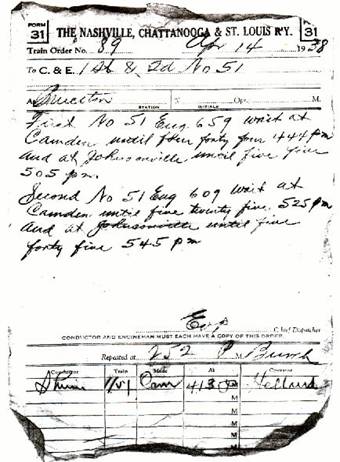 FORM 31 THE NASHVILLE, CHATTANOOGA & ST. LOUIS R'Y. FORM 31
Train Order No. 89 Apr 14 1938
To C. & E. 1st & 2d No 51
At Bruceton X Opr. M.
STATION INITIALS
First No 51 Eng 659 wait at
Camden until four forty four 444 pm
and at Johnsonville until five five
505 pm.
Second No 51 Eng 609 wait at
Camden until five twenty five 525 pm
and at Johnsonville until five
forty five 545 pm
Chief Dispatcher
CONDUCTOR AND ENGINEMAN MUST EACH HAVE A COPY OF THIS ORDER.
Repeated at 252 P M
Conductor Train Made At Operator
1/51 Com 413 P M
M
M
M